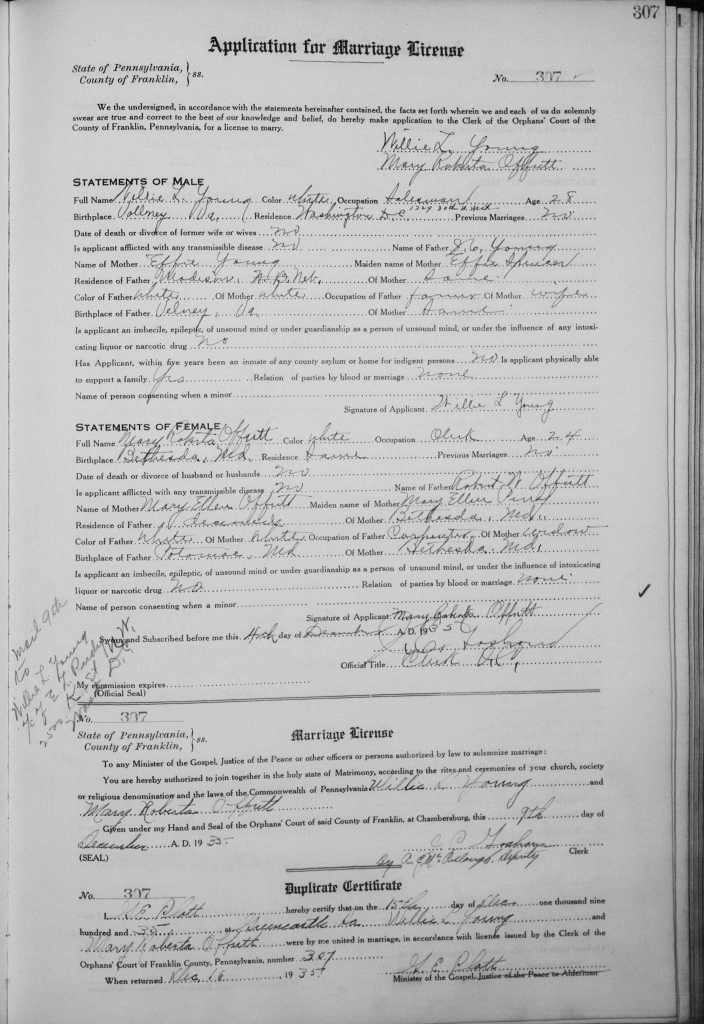 307
Application for Marriage License
State of Pennsylvania,
County of Franklin, } ss.
No. 307
We the undersigned, in accordance with the statements hereinafter contained, the facts set forth wherein we and each of us do solemnly
swear are true and correct to the best of our knowledge and belief, do hereby make application to the Clerk of the Orphans' Court of the
County of Franklin, Pennsylvania, for a license to marry.
Willie L. Young
Mary Roberta Offutt
STATEMENTS OF MALE
Full Name Willie L. Young Color white Occupation Salesman Age 28
Birthplace Va. Residence Washington D.C. Previous Marriages no
Date of death or divorce of former wife or wives no
Is applicant afflicted with any transmissible disease no Name of Father D.C. Young
Name of Mother Effie Young Maiden name of Mother Effie Spencer
Residence of Father Madison, Neb. Of Mother Same
Color of Father white Of Mother white Occupation of Father farmer Of Mother wife
Birthplace of Father Va. Of Mother Same
Is applicant an imbecile, epileptic, of unsound mind or under guardianship as a person of unsound mind, or under the influence of any intoxi-
cating liquor or narcotic drug no
Has Applicant, within five years been an inmate of any county asylum or home for indigent persons no Is applicant physically able
to support a family yes Relation of parties by blood or marriage none
Name of person consenting when a minor
Signature of Applicant Willie L Young
STATEMENTS OF FEMALE
Full Name Mary Roberta Offutt Color white Occupation Clerk Age 24
Birthplace Bethesda, Md. Residence Same Previous Marriages no
Date of death or divorce of husband or husbands no
Is applicant afflicted with any transmissible disease no Name of Father Robert W. Offutt
Name of Mother Mary Ellen Offutt Maiden name of Mother Mary Ellen
Residence of Father deceased Of Mother Bethesda, Md.
Color of Father white Of Mother white Occupation of Father Carpenter Of Mother widow
Birthplace of Father Potomac, Md Of Mother Bethesda Md.
Is applicant an imbecile, epileptic, of unsound mind or under guardianship as a person of unsound mind, or under the influence of intoxicating
liquor or narcotic drug no Relation of parties by blood or marriage none
Name of person consenting when a minor
Signature of Applicant Mary Roberta Offutt
Sworn and Subscribed before me this 4th day of December A. D. 1935
Official Title Clerk O.C.
My commission expires
(Official Seal)
Mail 9th
to
Willie L. Young
2500 K St N.W.
Wash D.C.
No. 307
State of Pennsylvania,
County of Franklin, } ss.
Marriage License
To any Minister of the Gospel, Justice of the Peace or other officers or persons authorized by law to solemnize marriage:
You are hereby authorized to join together in the holy state of Matrimony, according to the rites and ceremonies of your church, society
or religious denomination and the laws of the Commonwealth of Pennsylvania Willie L. Young and
Mary Roberta Offutt
Given under my Hand and Seal of the Orphans' Court of said County of Franklin, at Chambersburg, this 9th day of
December A. D. 1935
(SEAL)
Clerk
By Deputy
No. 307
Duplicate Certificate
I, hereby certify that on the 15th day of Dec. one thousand nine
hundred and 35 at Greencastle Pa Willie L Young and
Mary Roberta Offutt were by me united in marriage, in accordance with license issued by the Clerk of the
Orphans' Court of Franklin County, Pennsylvania, number 307
When returned Dec. 16 1935
Minister of the Gospel, Justice of the Peace or Alderman